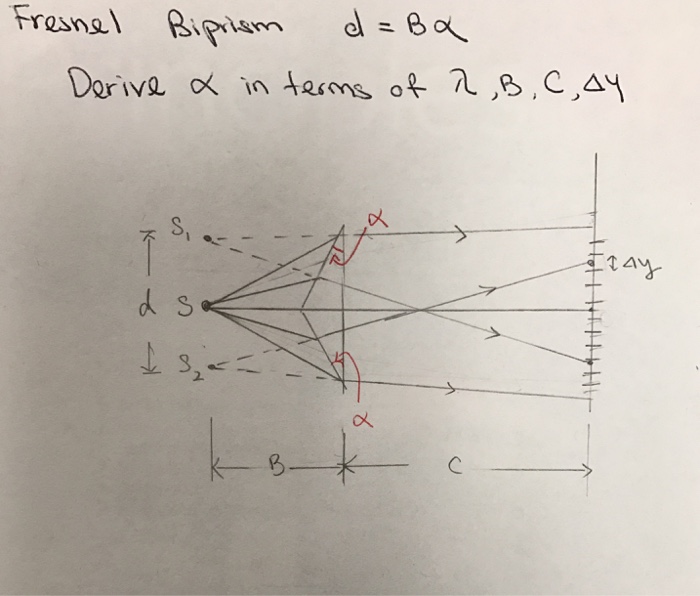 Fresnel Biprism d = Bα
Derive α in terms of λ, B, C, Δy
α
S₁
Δy
d S
S₂
α
B C